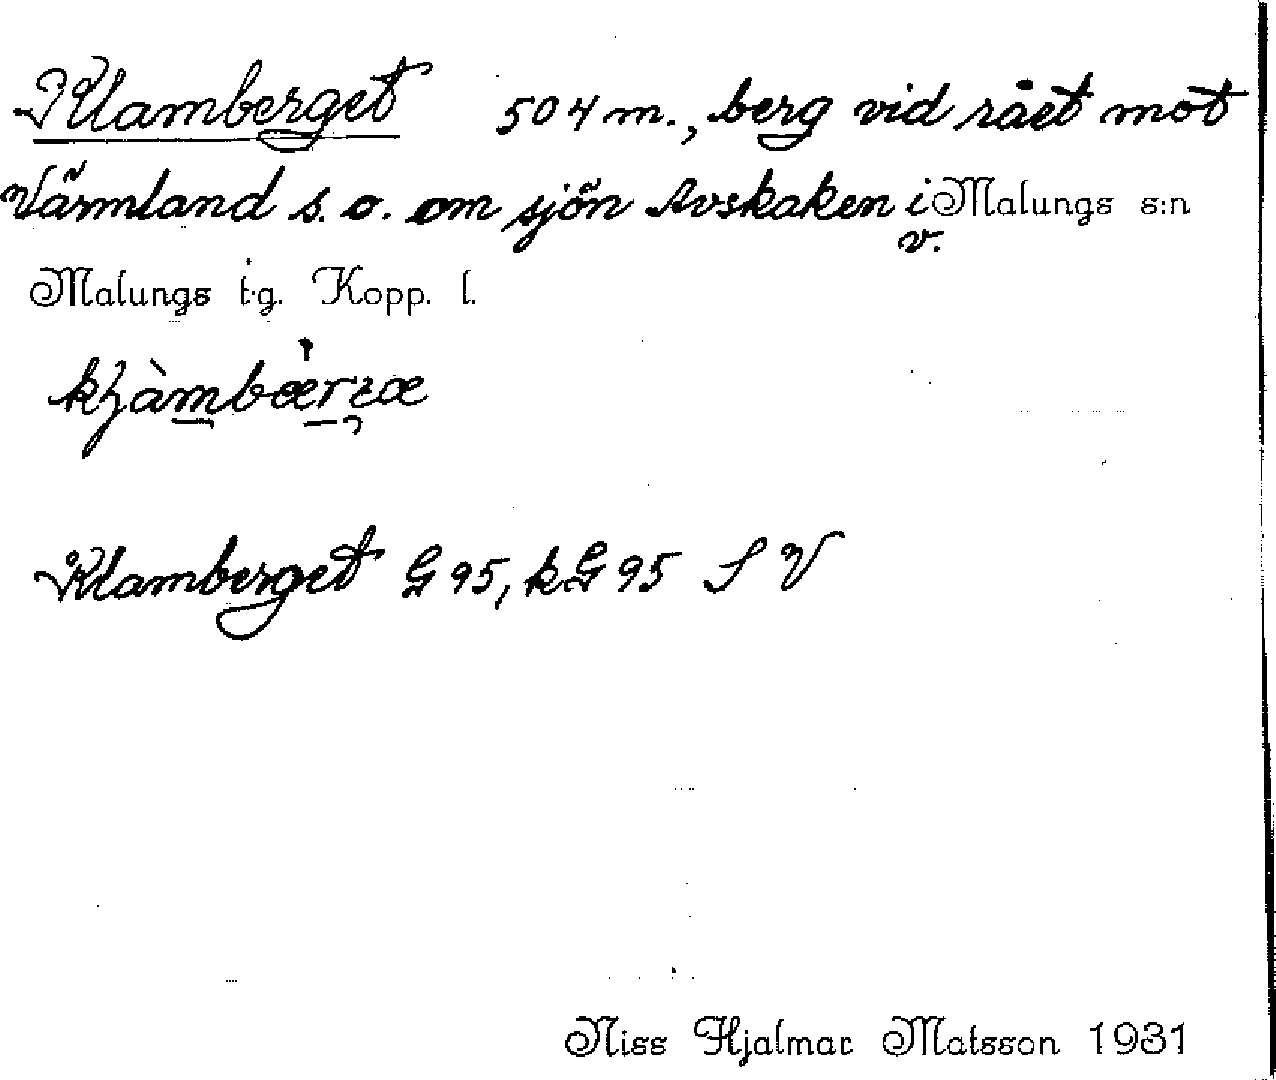 Klamberget 504 m., berg vid rået mot
Värmland s. o. om sjön Avskaken i Malungs s:n
v.
Malungs t.g. Kopp. l.
Klamberget G 95, kG 95 S V
Niss Hjalmar Matsson 1931